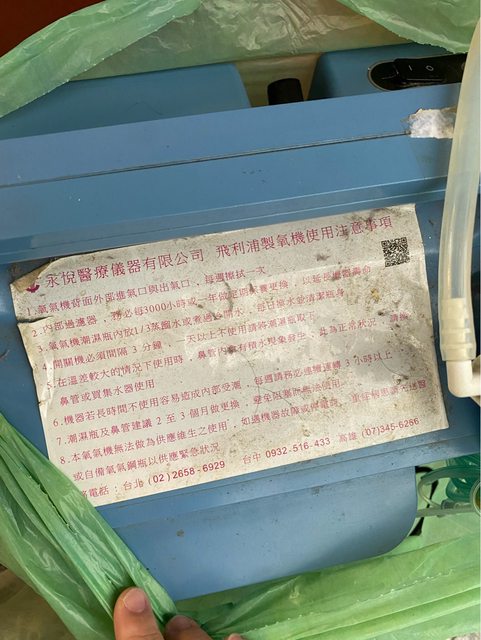 永悅醫療儀器有限公司 飛利浦製氧機使用注意事項
1.氧氣機背面外部進氣口與出氣口,每週擦拭一次
2.內部過濾器,務必每3000小時或一年做定期保養更換,以延長機器壽命
3.氧氣機潮濕瓶內放1/3蒸餾水或煮過的開水,每日換水並清潔瓶身
4.開關機必須間隔3分鐘,一天以上不使用請將潮濕瓶取下
5.在溫差較大的情況下使用時,鼻管內會有積水現象發生,此為正常狀況,請換
鼻管或買集水器使用
6.機器若長時間不使用容易造成內部受潮,每週請務必連續運轉3小時以上
7.潮濕瓶及鼻管建議2至3個月做更換,避免阻塞而無法使用
8.本氧氣機無法做為供應維生之使用,如遇機器故障或停電時,重症病患請先送醫
或自備氧氣鋼瓶以供應緊急狀況
電話:台北(02)2658-6929 台中0932-516-433 高雄(07)345-6286